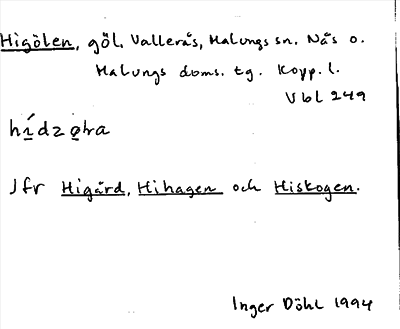 Higölen, göl. Vallerås, Malungs sn. Nås o.
Malungs doms. tg. Kopp. l.
Vbl 249
hídzøła
Jfr Higård, Hihagen och Hiskogen.
Inger Döhl 1994